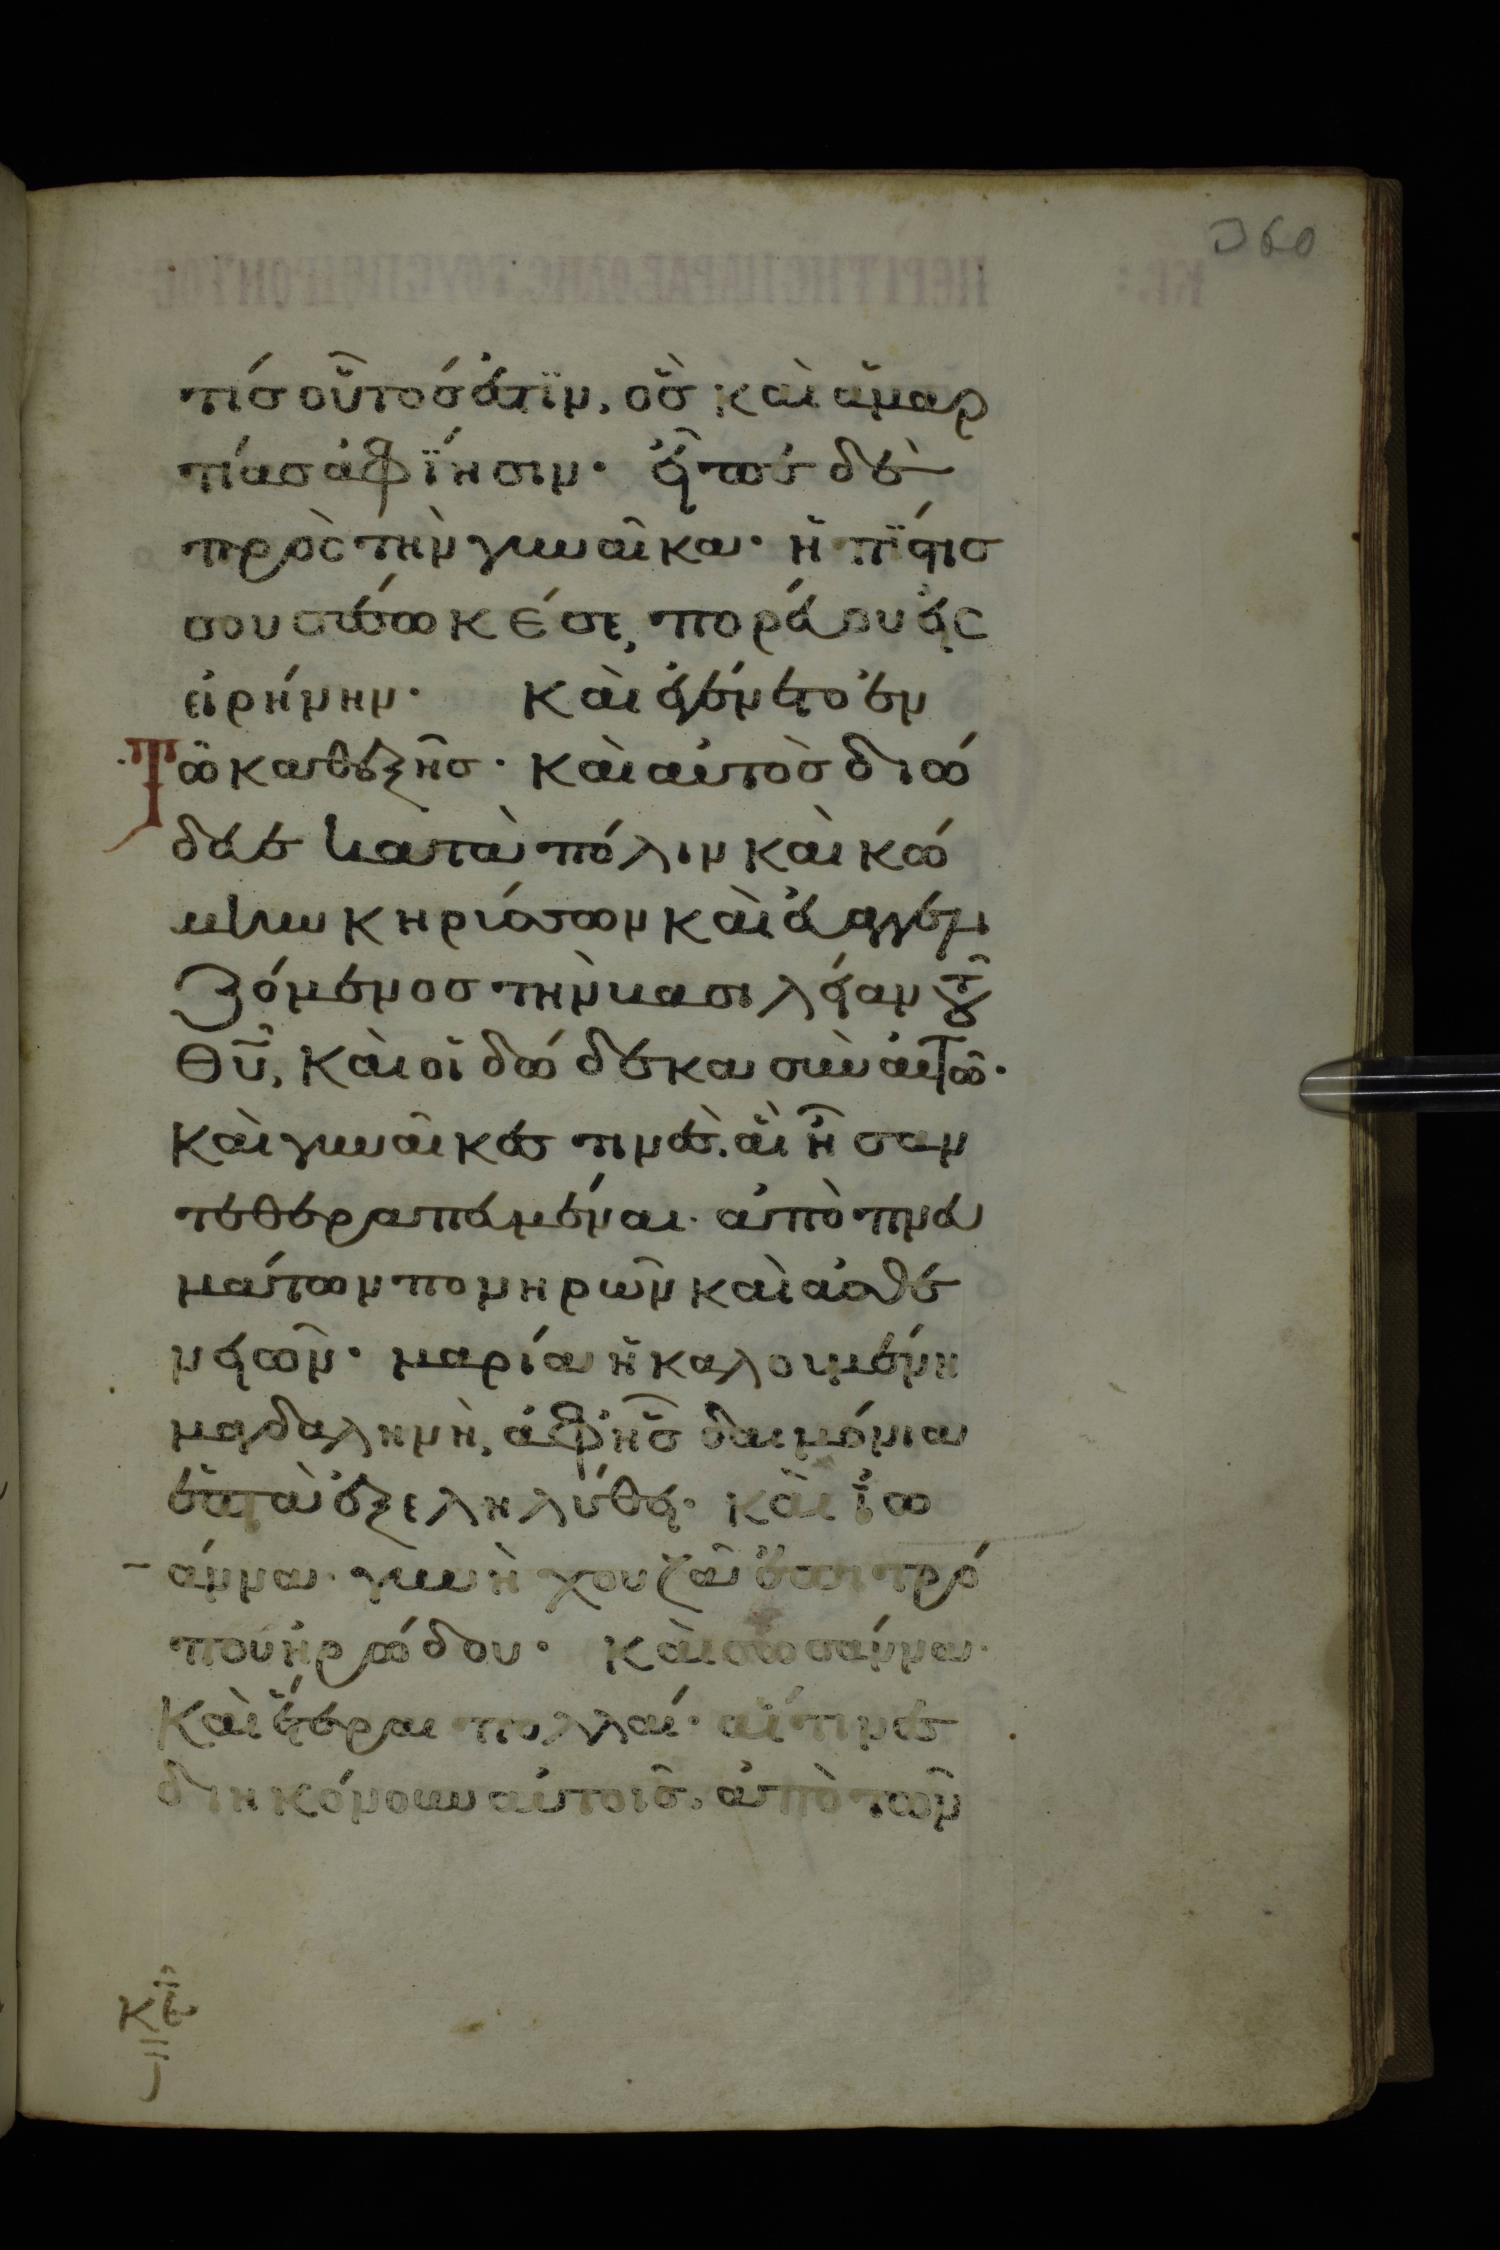 360
τίσ οὗτόσ ἐστϊν, ὃσ καὶ ἁμαρ
τίασ ἀφΐησιν· εἶπε δὲ
πρὸς τὴν γυναῖκα· ἡ πΐστισ
σου σέσωκέ σε, πορεύου εἰς
εἰρήνην· Καὶ ἐγένετο ἐν
Τῶ καθεξῆσ· καὶ αὐτὸσ διώ
δευε κατὰ πόλιν καὶ κώ
μην κηρύσσων καὶ εὐαγγελι
ζόμενοσ τὴν βασιλείαν τοῦ
θῦ, καὶ οἱ δώδεκα σὺν αὐτῶ·
καὶ γυναῖκεσ τινὲσ, αἳ ἦσαν
τεθεραπευμέναι· ἀπὸ πνευ
μάτων πονηρῶν καὶ ἀσθε
νειῶν· μαρία ἡ καλουμένη
μαγδαληνὴ, ἀφ' ἧσ δαιμόνια
ἑπτὰ ἐξεληλύθει· καὶ ἰω
άννα· γυνὴ χουζᾶ ἐπιτρό
που ἡρώδου· καὶ σωσάννα·
καὶ ἕτεραι πολλαί· αἵτινεσ
διηκόνουν αὐτοῖσ, ἀπὸ τῶν